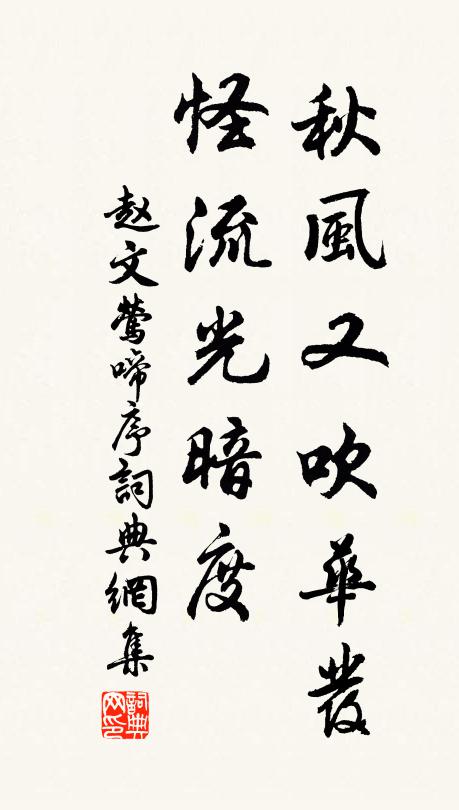 秋風又吹華髮
怪流光暗度
赵文鶯啼序詞典網集
詞典网印